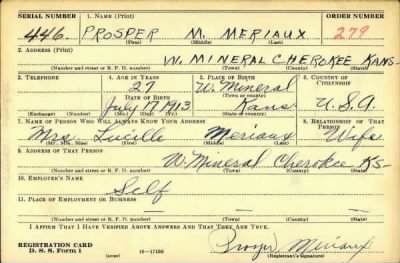 SERIAL NUMBER 1. NAME (Print) ORDER NUMBER
446. PROSPER M. MERIAUX 279
(First) (Middle) (Last)
2. ADDRESS (Print)
W. MINERAL CHEROKEE KANS-
(Number and street or R. F. D. number) (Town) (County) (State)
3. TELEPHONE 4. AGE IN YEARS 5. PLACE OF BIRTH 6. COUNTRY OF CITIZENSHIP
27 W. Mineral
DATE OF BIRTH (Town or county)
July 17 1913 Kans U.S.A.
(Exchange) (Number) (Mo.) (Day) (Yr.) (State or country)
7. NAME OF PERSON WHO WILL ALWAYS KNOW YOUR ADDRESS 8. RELATIONSHIP OF THAT PERSON
Mrs. Lucille Meriaux Wife
(Mr., Mrs., Miss) (First) (Middle) (Last)
9. ADDRESS OF THAT PERSON
W. Mineral Cherokee Ks-
(Number and street or R. F. D. number) (Town) (County) (State)
10. EMPLOYER'S NAME
Self
11. PLACE OF EMPLOYMENT OR BUSINESS
(Number and street or R. F. D. number) (Town) (County) (State)
I AFFIRM THAT I HAVE VERIFIED ABOVE ANSWERS AND THAT THEY ARE TRUE.
Prosper Meriaux
REGISTRATION CARD
D. S. S. Form 1 (over) 16—17105 (Registrant's signature)